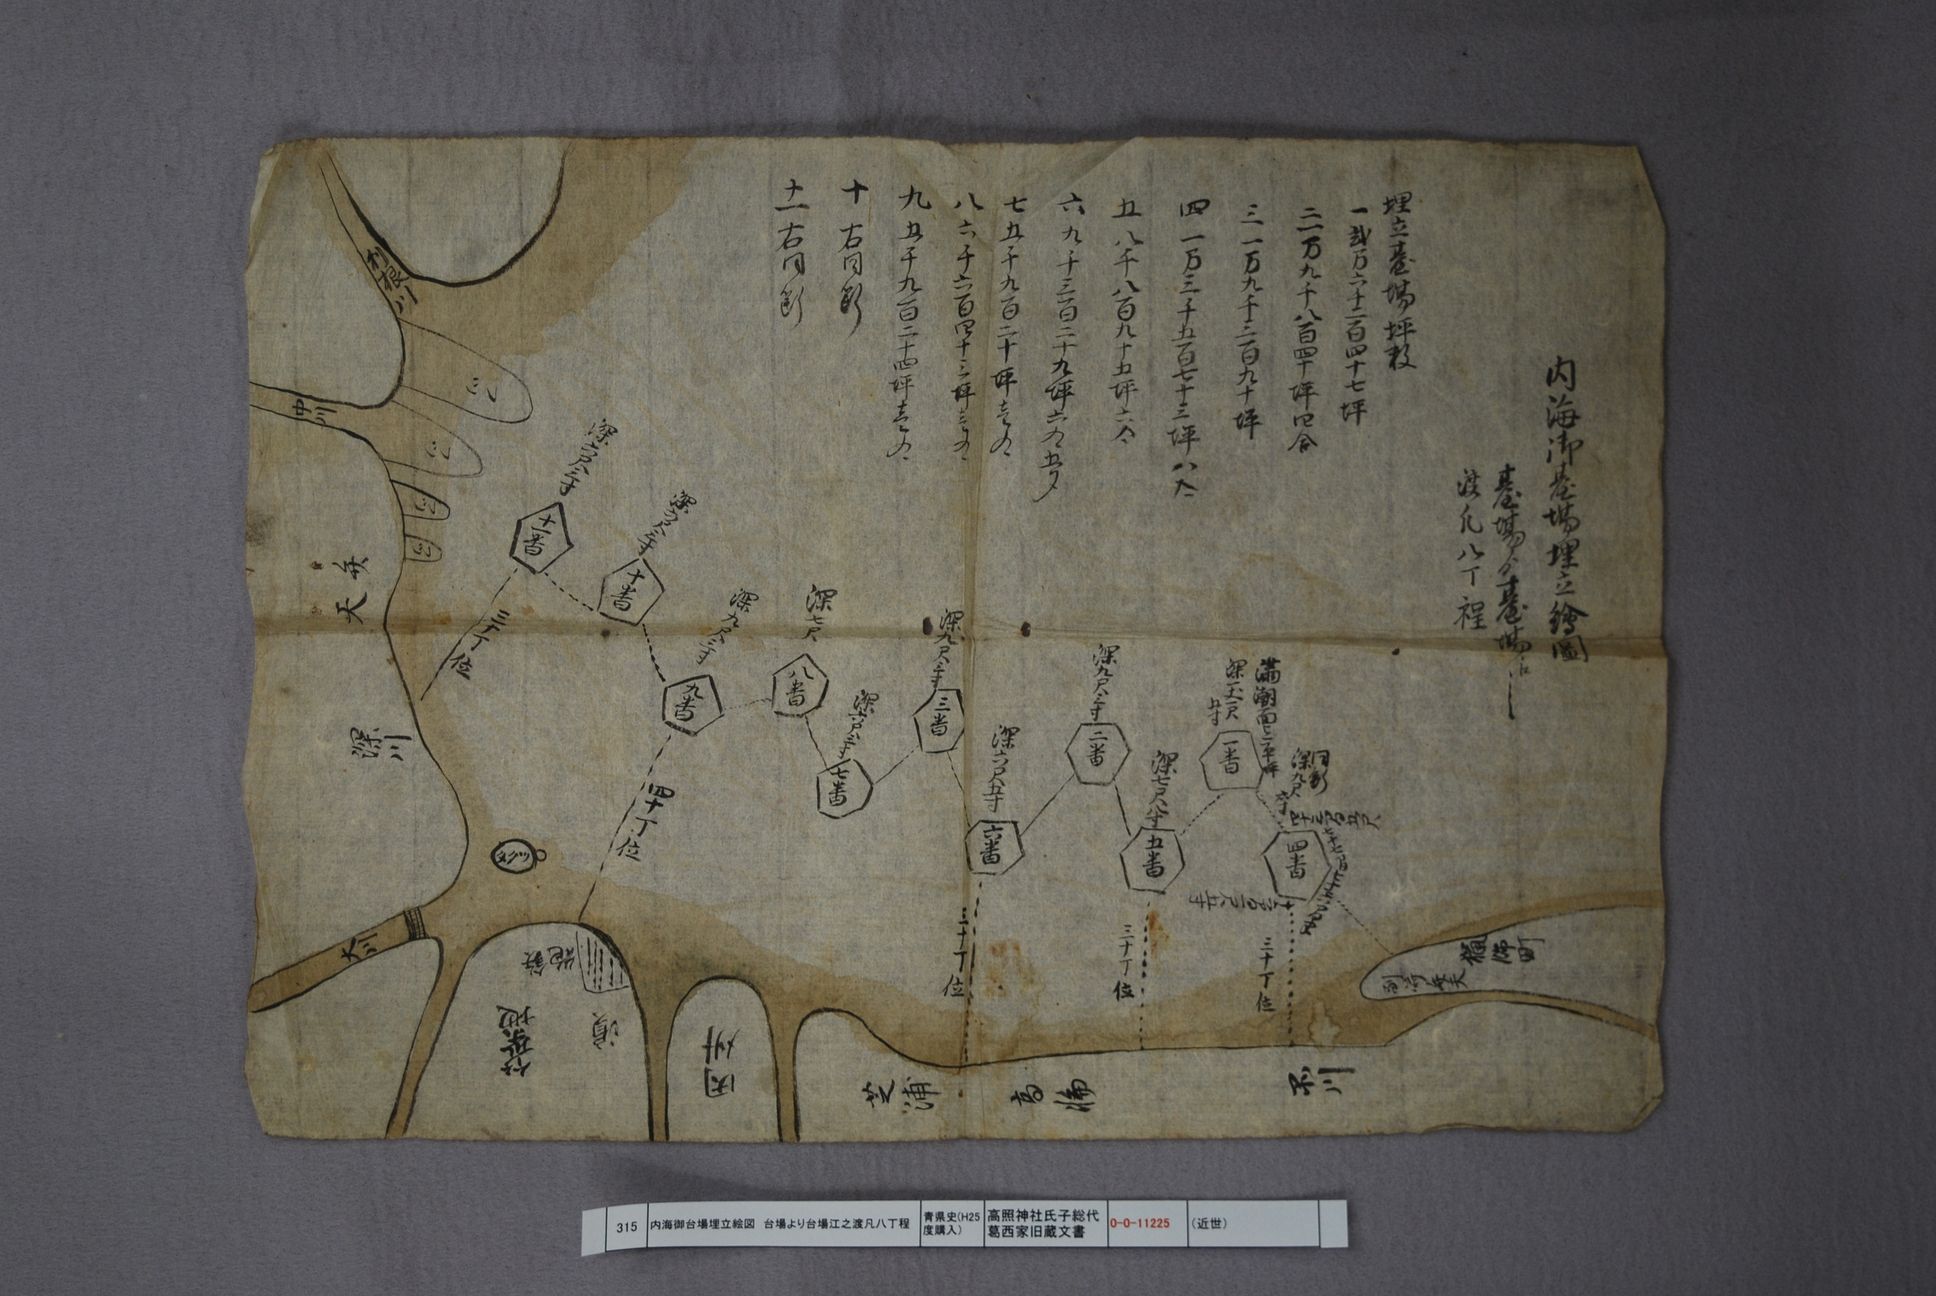 内海御臺場埋立繪圖
臺場ゟ臺場江之
渡凡八丁程
埋立臺場坪数
一 弐万六千二百四十七坪
二 万九千八百四十坪四合
三 一万九千三百九十坪
四 一万三千五百七十三坪八合
五 八千八百九十五坪六合
六 九千三百二十九坪
七 五千九百二十坪
八 六千六百四十三坪
九 五千九百二十四坪
十 右同断
十一 右同断
利根川
中川
弁天
深川
大川
ツクダ
鉄炮
築地
濱
芝浦
高縄
品川
猟師町
十一番
深六尺三寸
十番
深六尺三寸
九番
深九尺三寸
八番
深七尺
七番
深六尺三寸
三番
深九尺三寸
六番
深六尺五寸
二番
深九尺三寸
五番
深七尺八寸
一番
満潮面
深一丈二尺
五寸
四番
同断
深九尺
三十丁位
四十丁位
三十丁位
三十丁位
三十丁位
315
内海御台場埋立絵図 台場より台場江之渡凡八丁程
青県史(H25
度購入)
高照神社氏子総代
葛西家旧蔵文書
0-0-11225
(近世)